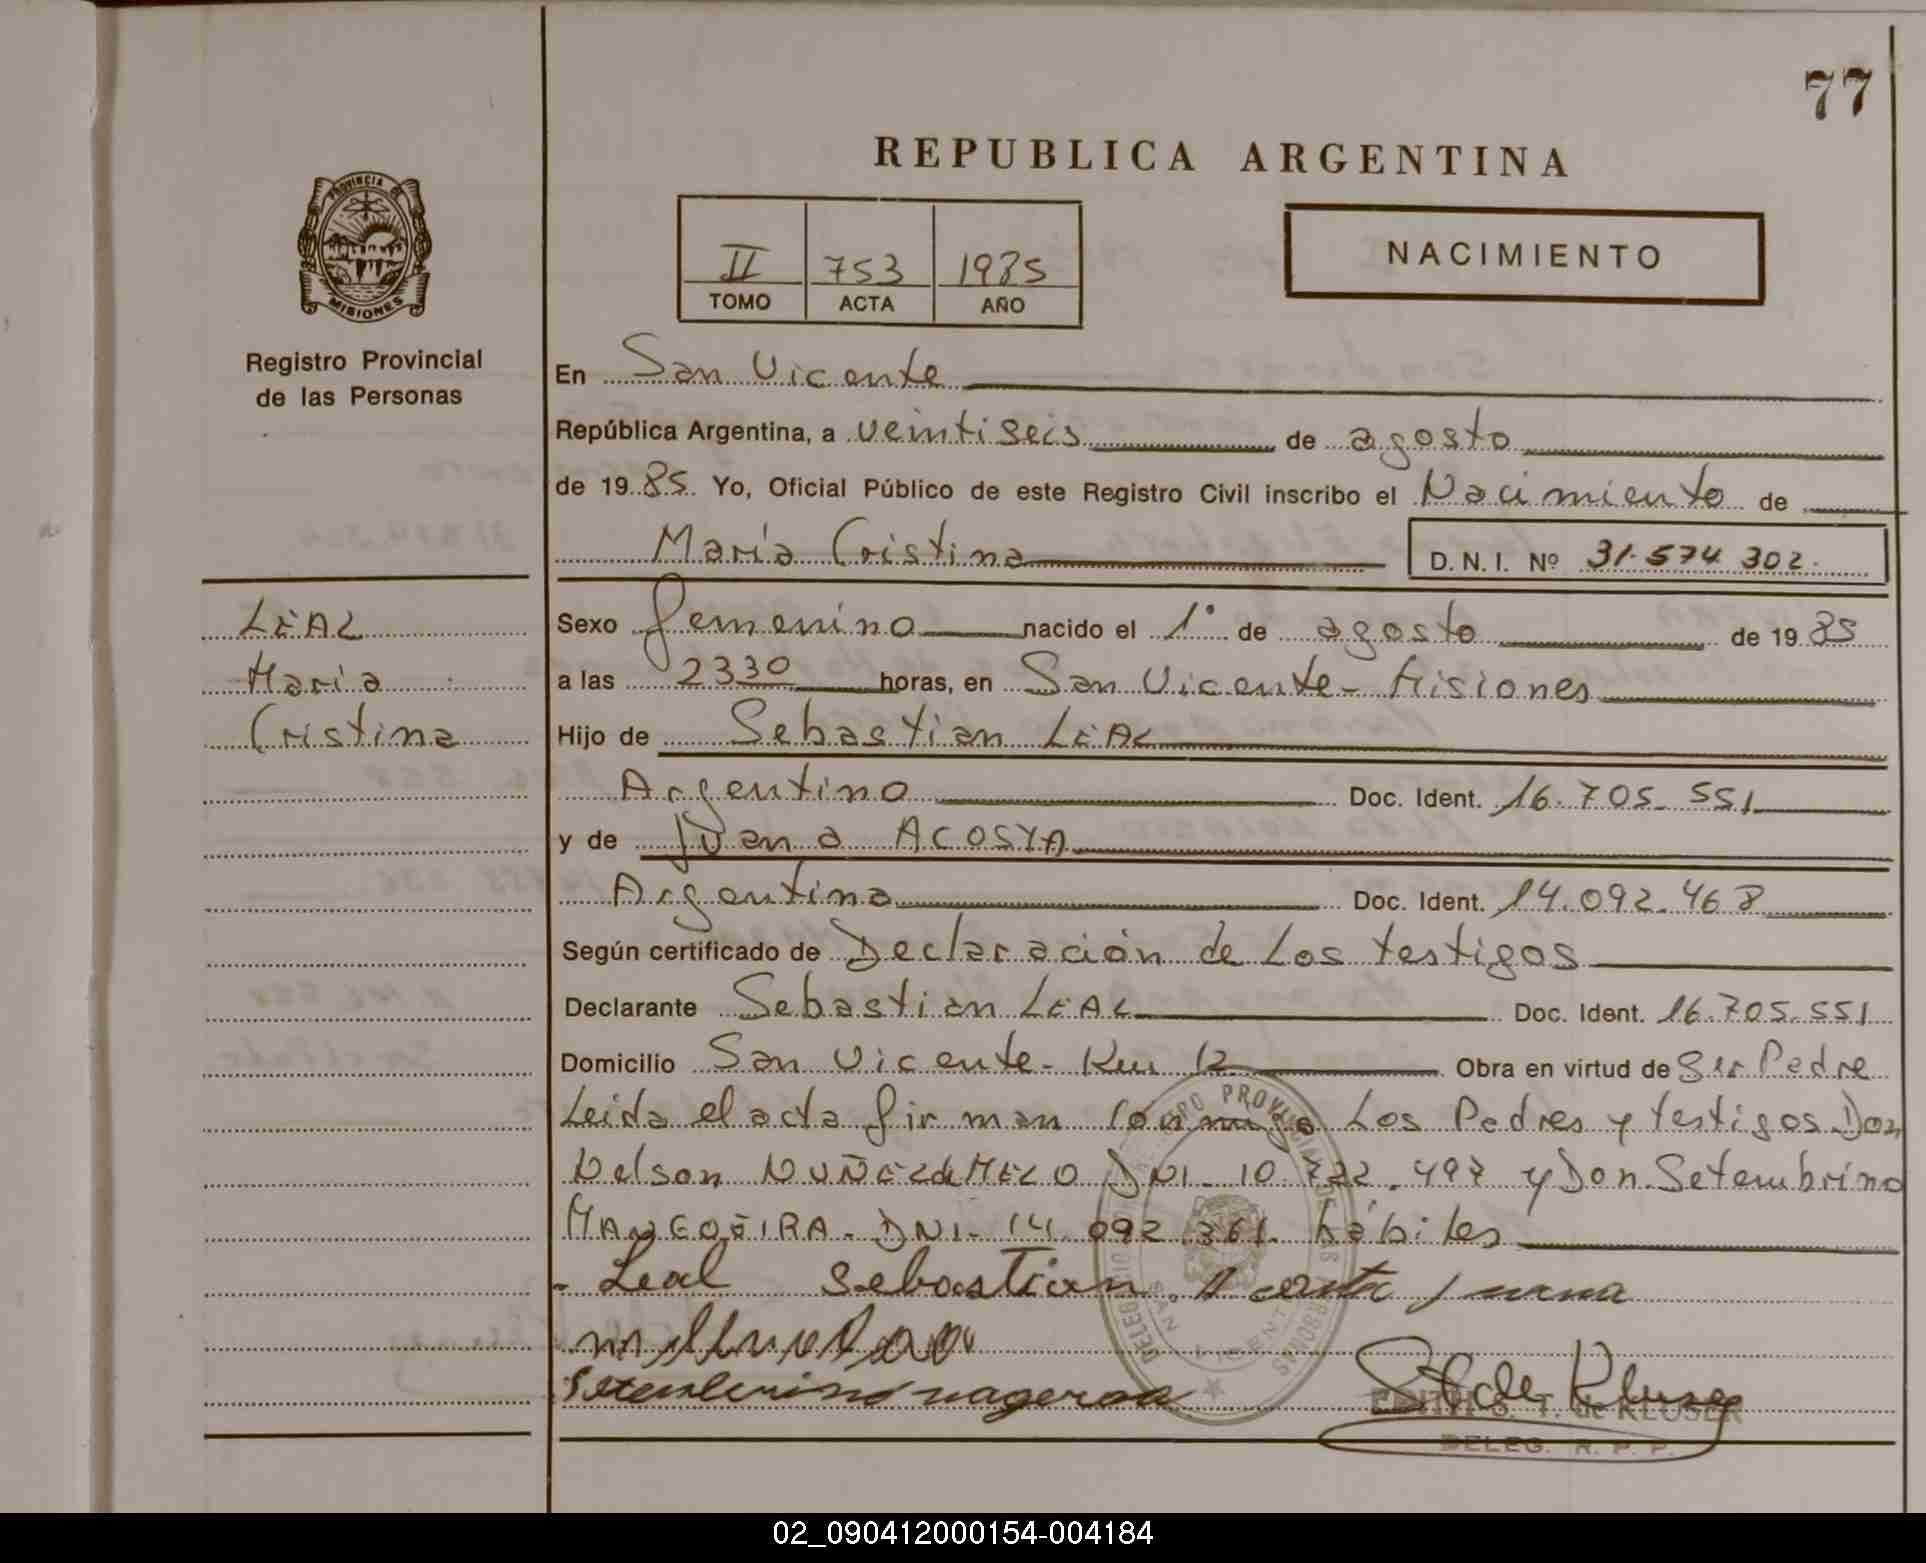 77
REPUBLICA ARGENTINA
PROVINCIA DE
MISIONES
Registro Provincial
de las Personas
II 753 1985
TOMO ACTA AÑO
NACIMIENTO
En San Vicente
República Argentina, a veintiseis de agosto
de 19 85 Yo, Oficial Público de este Registro Civil inscribo el Nacimiento de
María Cristina D.N.I. Nº 31.574 302.
LEAL
Maria
Cristina
Sexo femenino nacido el 1° de agosto de 19 85
a las 2330 horas, en San Vicente - Misiones
Hijo de Sebastian LEAL
Argentino Doc. Ident. 16.705.551
y de Juana ACOSTA
Argentina Doc. Ident. 14.092.468
Según certificado de Declaración de Los testigos
Declarante Sebastian LEAL Doc. Ident. 16.705.551
Domicilio San Vicente - Km 12 Obra en virtud de Ser Padre
Leida el acta firman conmigo Los Padres y testigos Don
Nelson NUÑEZ de MELO DNI - 10.722.497 y Don Setembrino
DNI - 14.092.361. hábiles
Leal Sebastian. Acosta Juana
Setembrino
EDITH S. T. de KLUSER
DELEG. R. P. P.
02_090412000154-004184